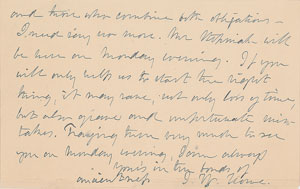 and those who combine both obligations –
I need say no more. Mr. will
be here on Monday evening. If you
will only help us to start the right
thing, it may save, not only loss of time
but also grave and unfortunate mis-
takes. Hoping then very much to see
you on Monday evening, I am always
yours in the bonds of
J. W. Howe.